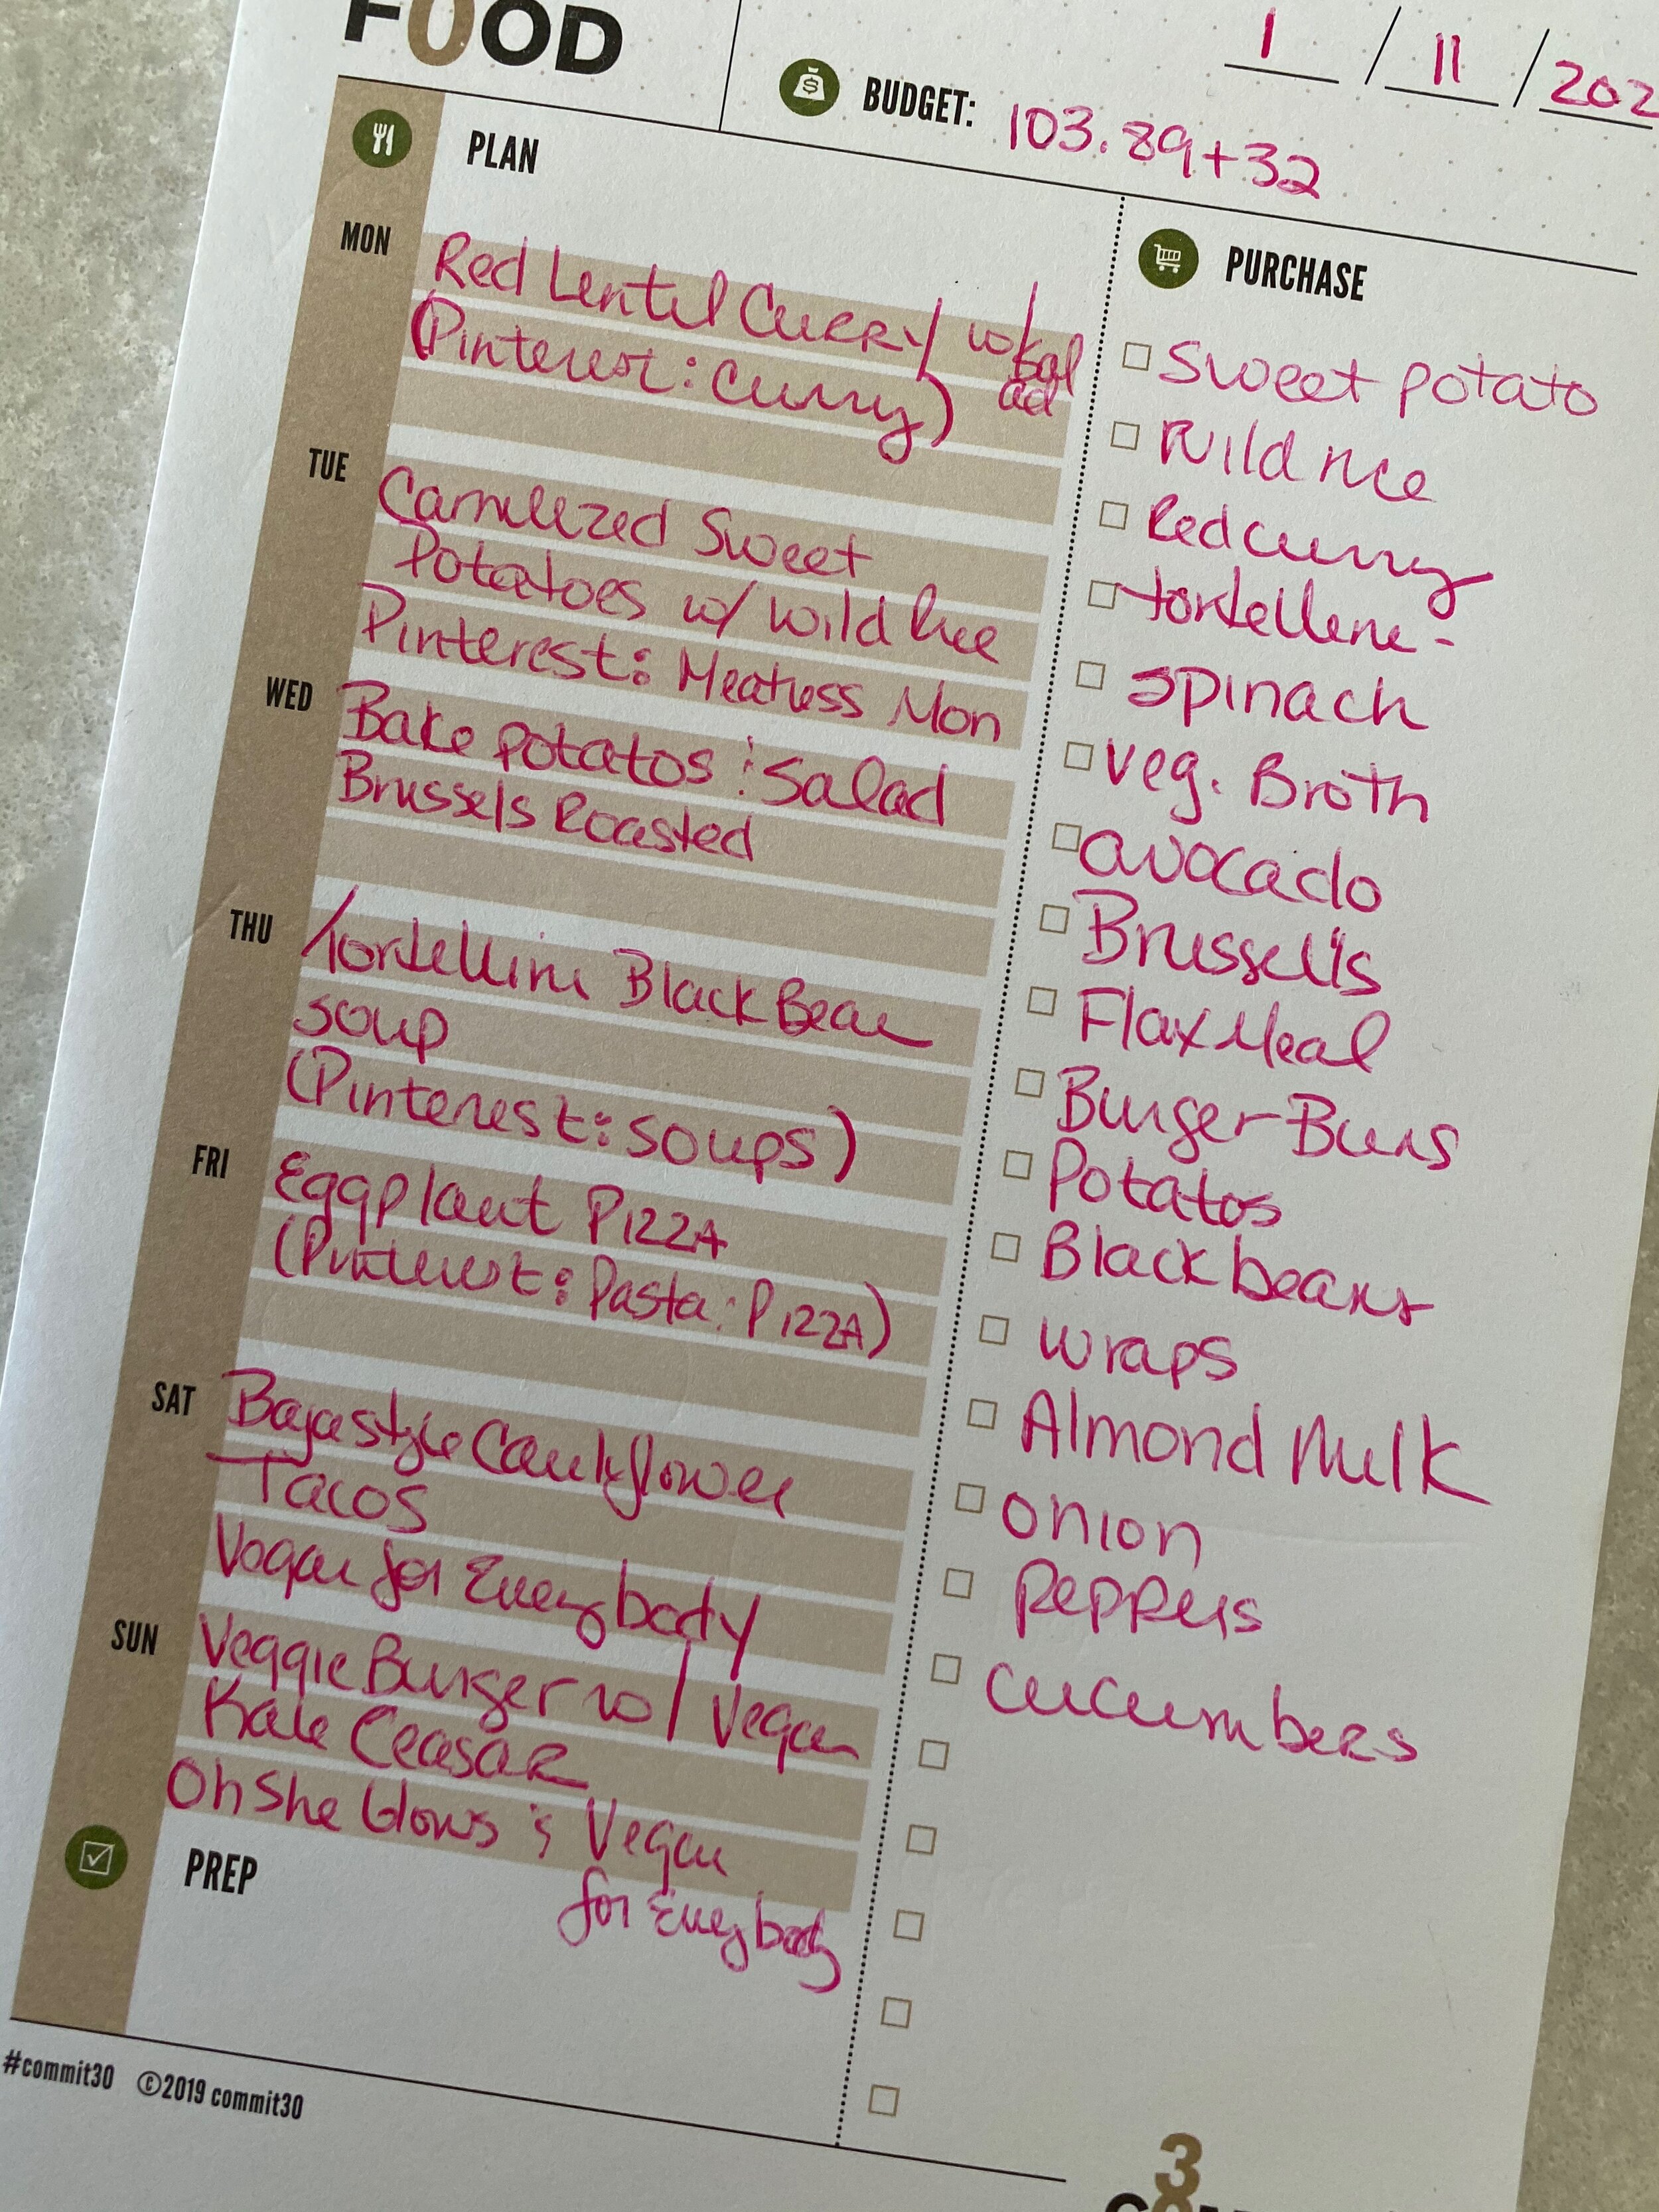 FOOD
1 / 11 / 202
BUDGET: 103.89+32
PLAN
MON
Red Lentil Curry w/ Sal
ad
(Pinterest: Curry)
TUE
Camelized Sweet
Potatoes w/ wild Rice
Pinterest: Meatless Mon
WED
Bake Potatos & Salad
Brussels Roasted
THU
Tortellini Black Bean
Soup
(Pinterest: Soups)
FRI
Eggplant PIZZA
(Pinterest: Pasta: PIZZA)
SAT
Baja style Cauliflower
Tacos
Vegan for Everybody
SUN
Veggie Burger w/ Vegan
Kale Ceasar
Oh She Glows & Vegan
for Everybody
PREP
PURCHASE
Sweet potato
Wild rice
Red curry
tortellene -
Spinach
Veg. Broth
avocado
Brussel's
Flax Meal
Burger Buns
Potatos
Black beans
wraps
Almond Milk
onion
Peppers
cucumbers
#commit30 ©2019 commit30
3